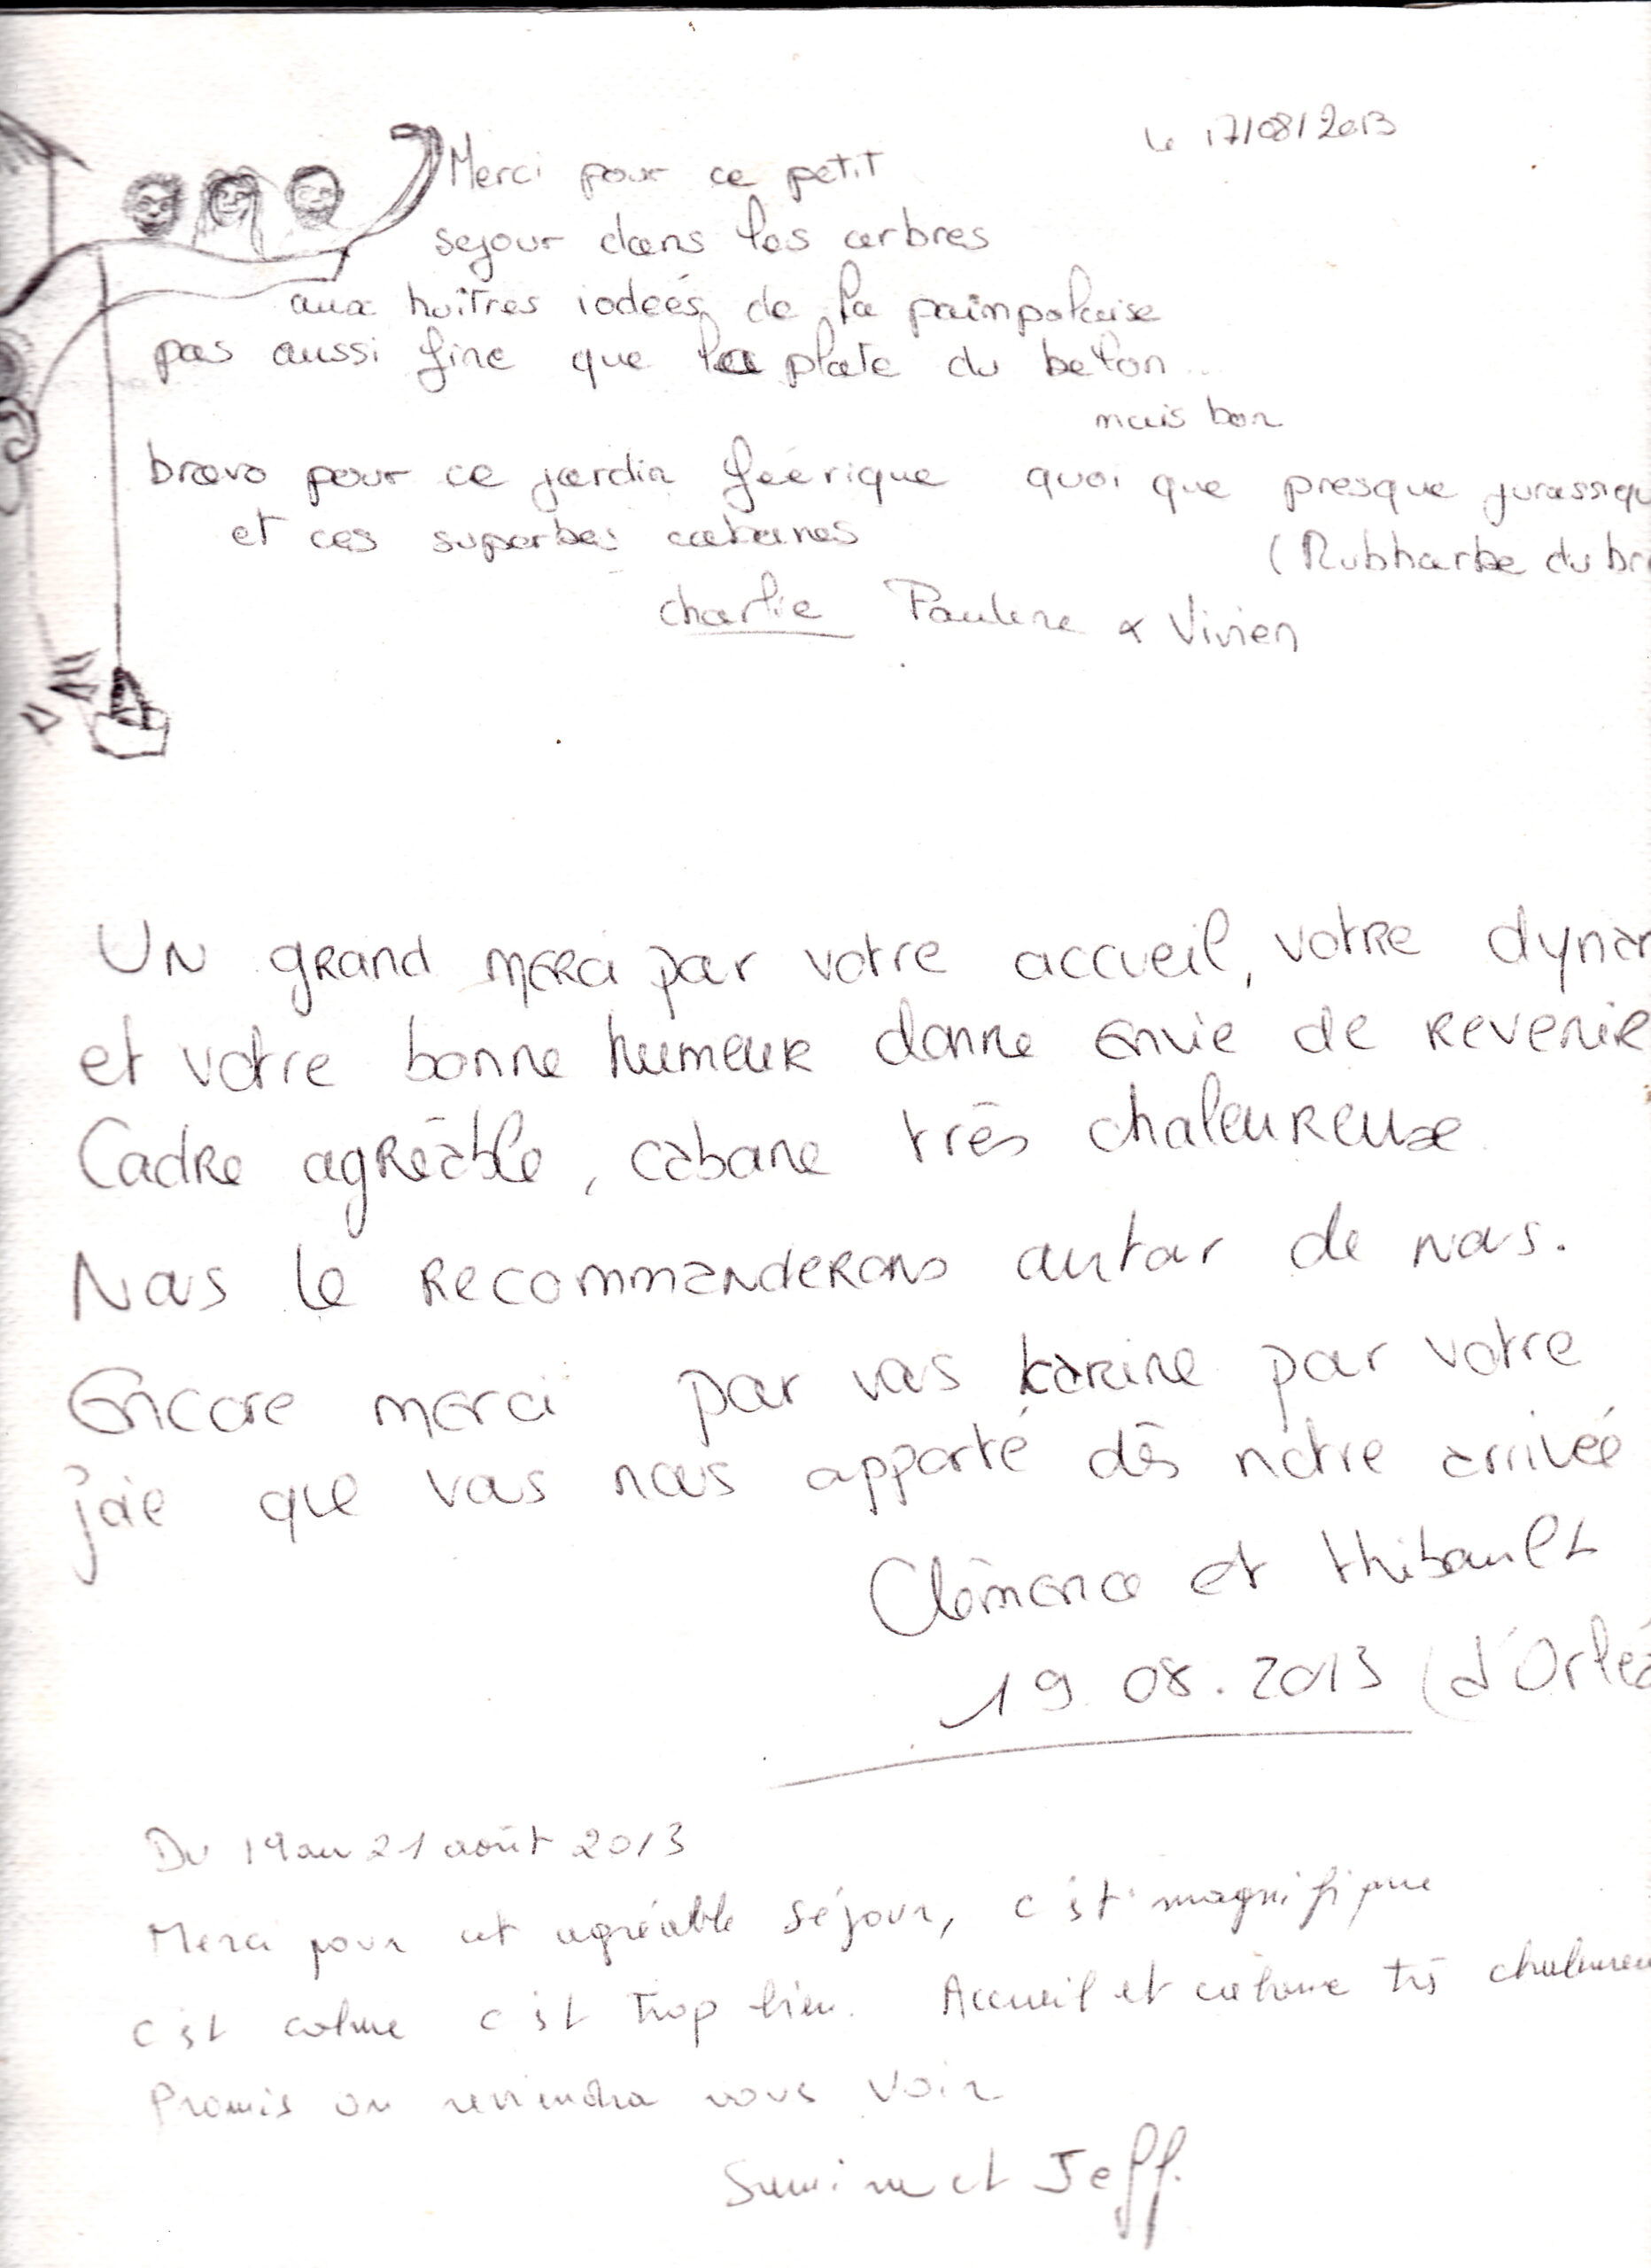 le 17/08/2013
Merci pour ce petit
sejour dans les arbres
aux huîtres iodées de la paimpolaise
pas aussi fine que la plate du belon...
mais bon
bravo pour ce jardin féérique quoi que presque jurassiqu
et ces superbes cabanes
(Rubharbe du br
charlie Pauline & Vivien
Un grand merci pour votre accueil, votre dynam
et votre bonne humeur donne envie de revenir
Cadre agréable, cabane très chaleureuse
Nous le recommanderons autour de nous.
Encore merci pour vous Karine pour votre
joie que vous nous apporté dès notre arrivée
Clémence et thibault
19.08.2013 (d'Orléa
Du 19 au 21 août 2013
Merci pour cet agréable séjour, c'est magnifique
c'est calme c'est trop bien. Accueil et cabane très chaleureu
Promis on reviendra vous voir
et Jeff.